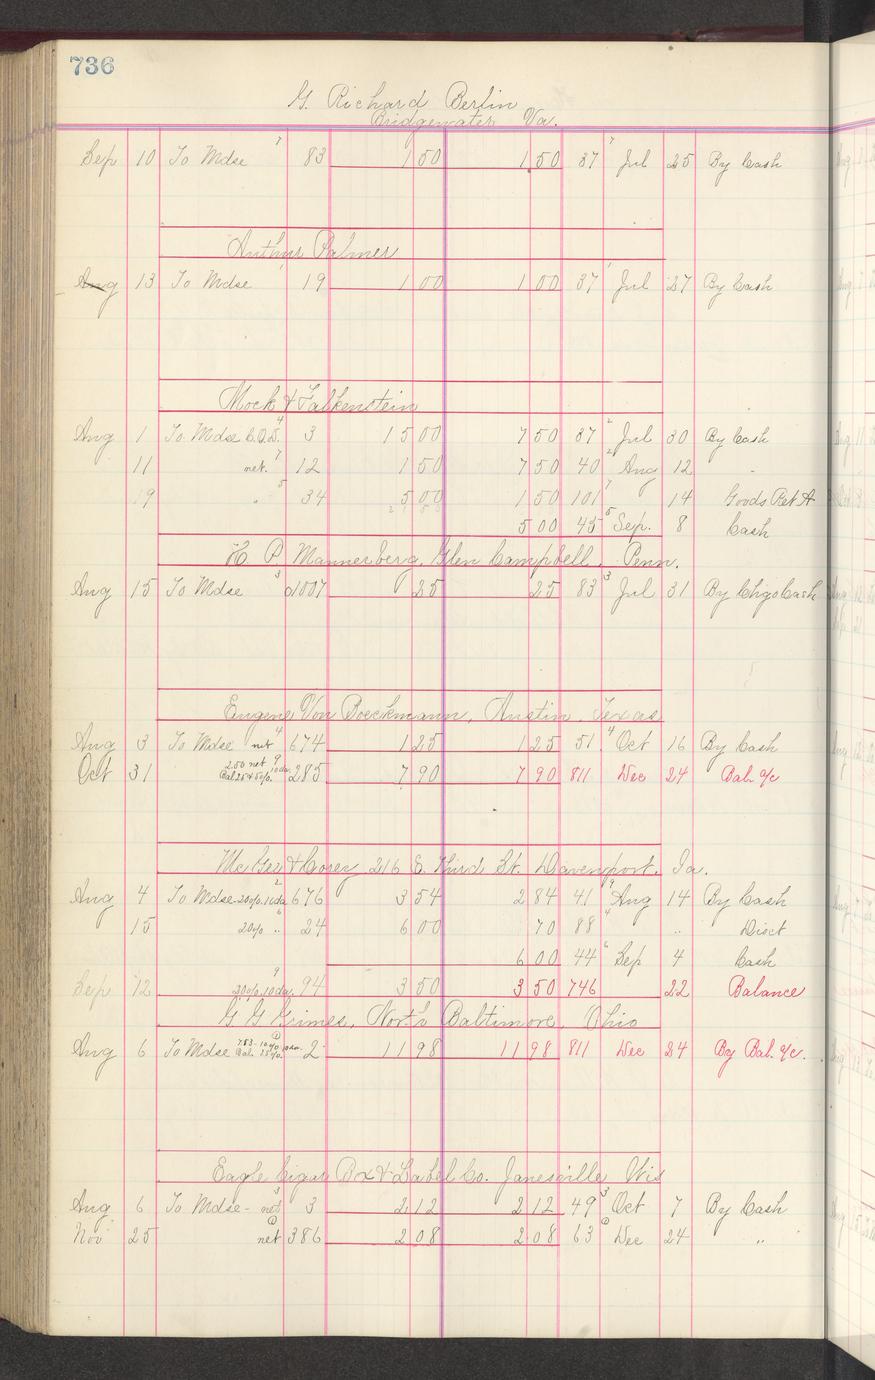 736
G. Richard Berlin
Bridgewater Va.
Sep 10 To Mdse 7 83 1 50 1 50 37 7 Jul 25 By Cash
Arthur Palmer
Aug 13 To Mdse 1 19 1 00 1 00 37 1 Jul 27 By Cash
Mock & Falkenstein
Aug 1 To Mdse C.O.D. 4 3 15 00 7 50 37 2 Jul 30 By Cash
11 net. 7 12 1 50 7 50 40 2 Aug 12 "
19 " 5 34 5 00 1 50 101 7 14 Goods Ret
5 00 45 5 Sep. 8 Cash
H. P. Mannerberg, Glen Campbell, Penn.
Aug 15 To Mdse 3 1007 25 25 83 3 Jul 31 By Chgo Cash
Eugene Von Boeckmann, Austin, Texas
Aug 3 To Mdse net 4 674 1 25 1 25 51 4 Oct 16 By Cash
Oct 31 2.50 net 9 10 da. 285 7 90 7 90 811 Dec 24 Bal. a/c
McGee & Corey 216 E. Third St. Davenport. Ia.
Aug 4 To Mdse - 20% 10 da 2 676 3 54 2 84 41 9 Aug 14 By Cash
15 20% " 6 24 6 00 70 88 4 " Disct
6 00 44 6 Sep 4 Cash
Sep 12 20% 10 da. 9 94 3 50 3 50 746 22 Balance
G G Grimes, North Baltimore, Ohio
Aug 6 To Mdse 2 11 98 11 98 811 Dec 24 By Bal. a/c.
Eagle Cigar Box & Label Co. Janesville Wis
Aug 6 To Mdse - net 3 3 2 12 2 12 49 3 Oct 7 By Cash
Nov 25 net 1 386 2 08 2 08 63 Dec 24 " "